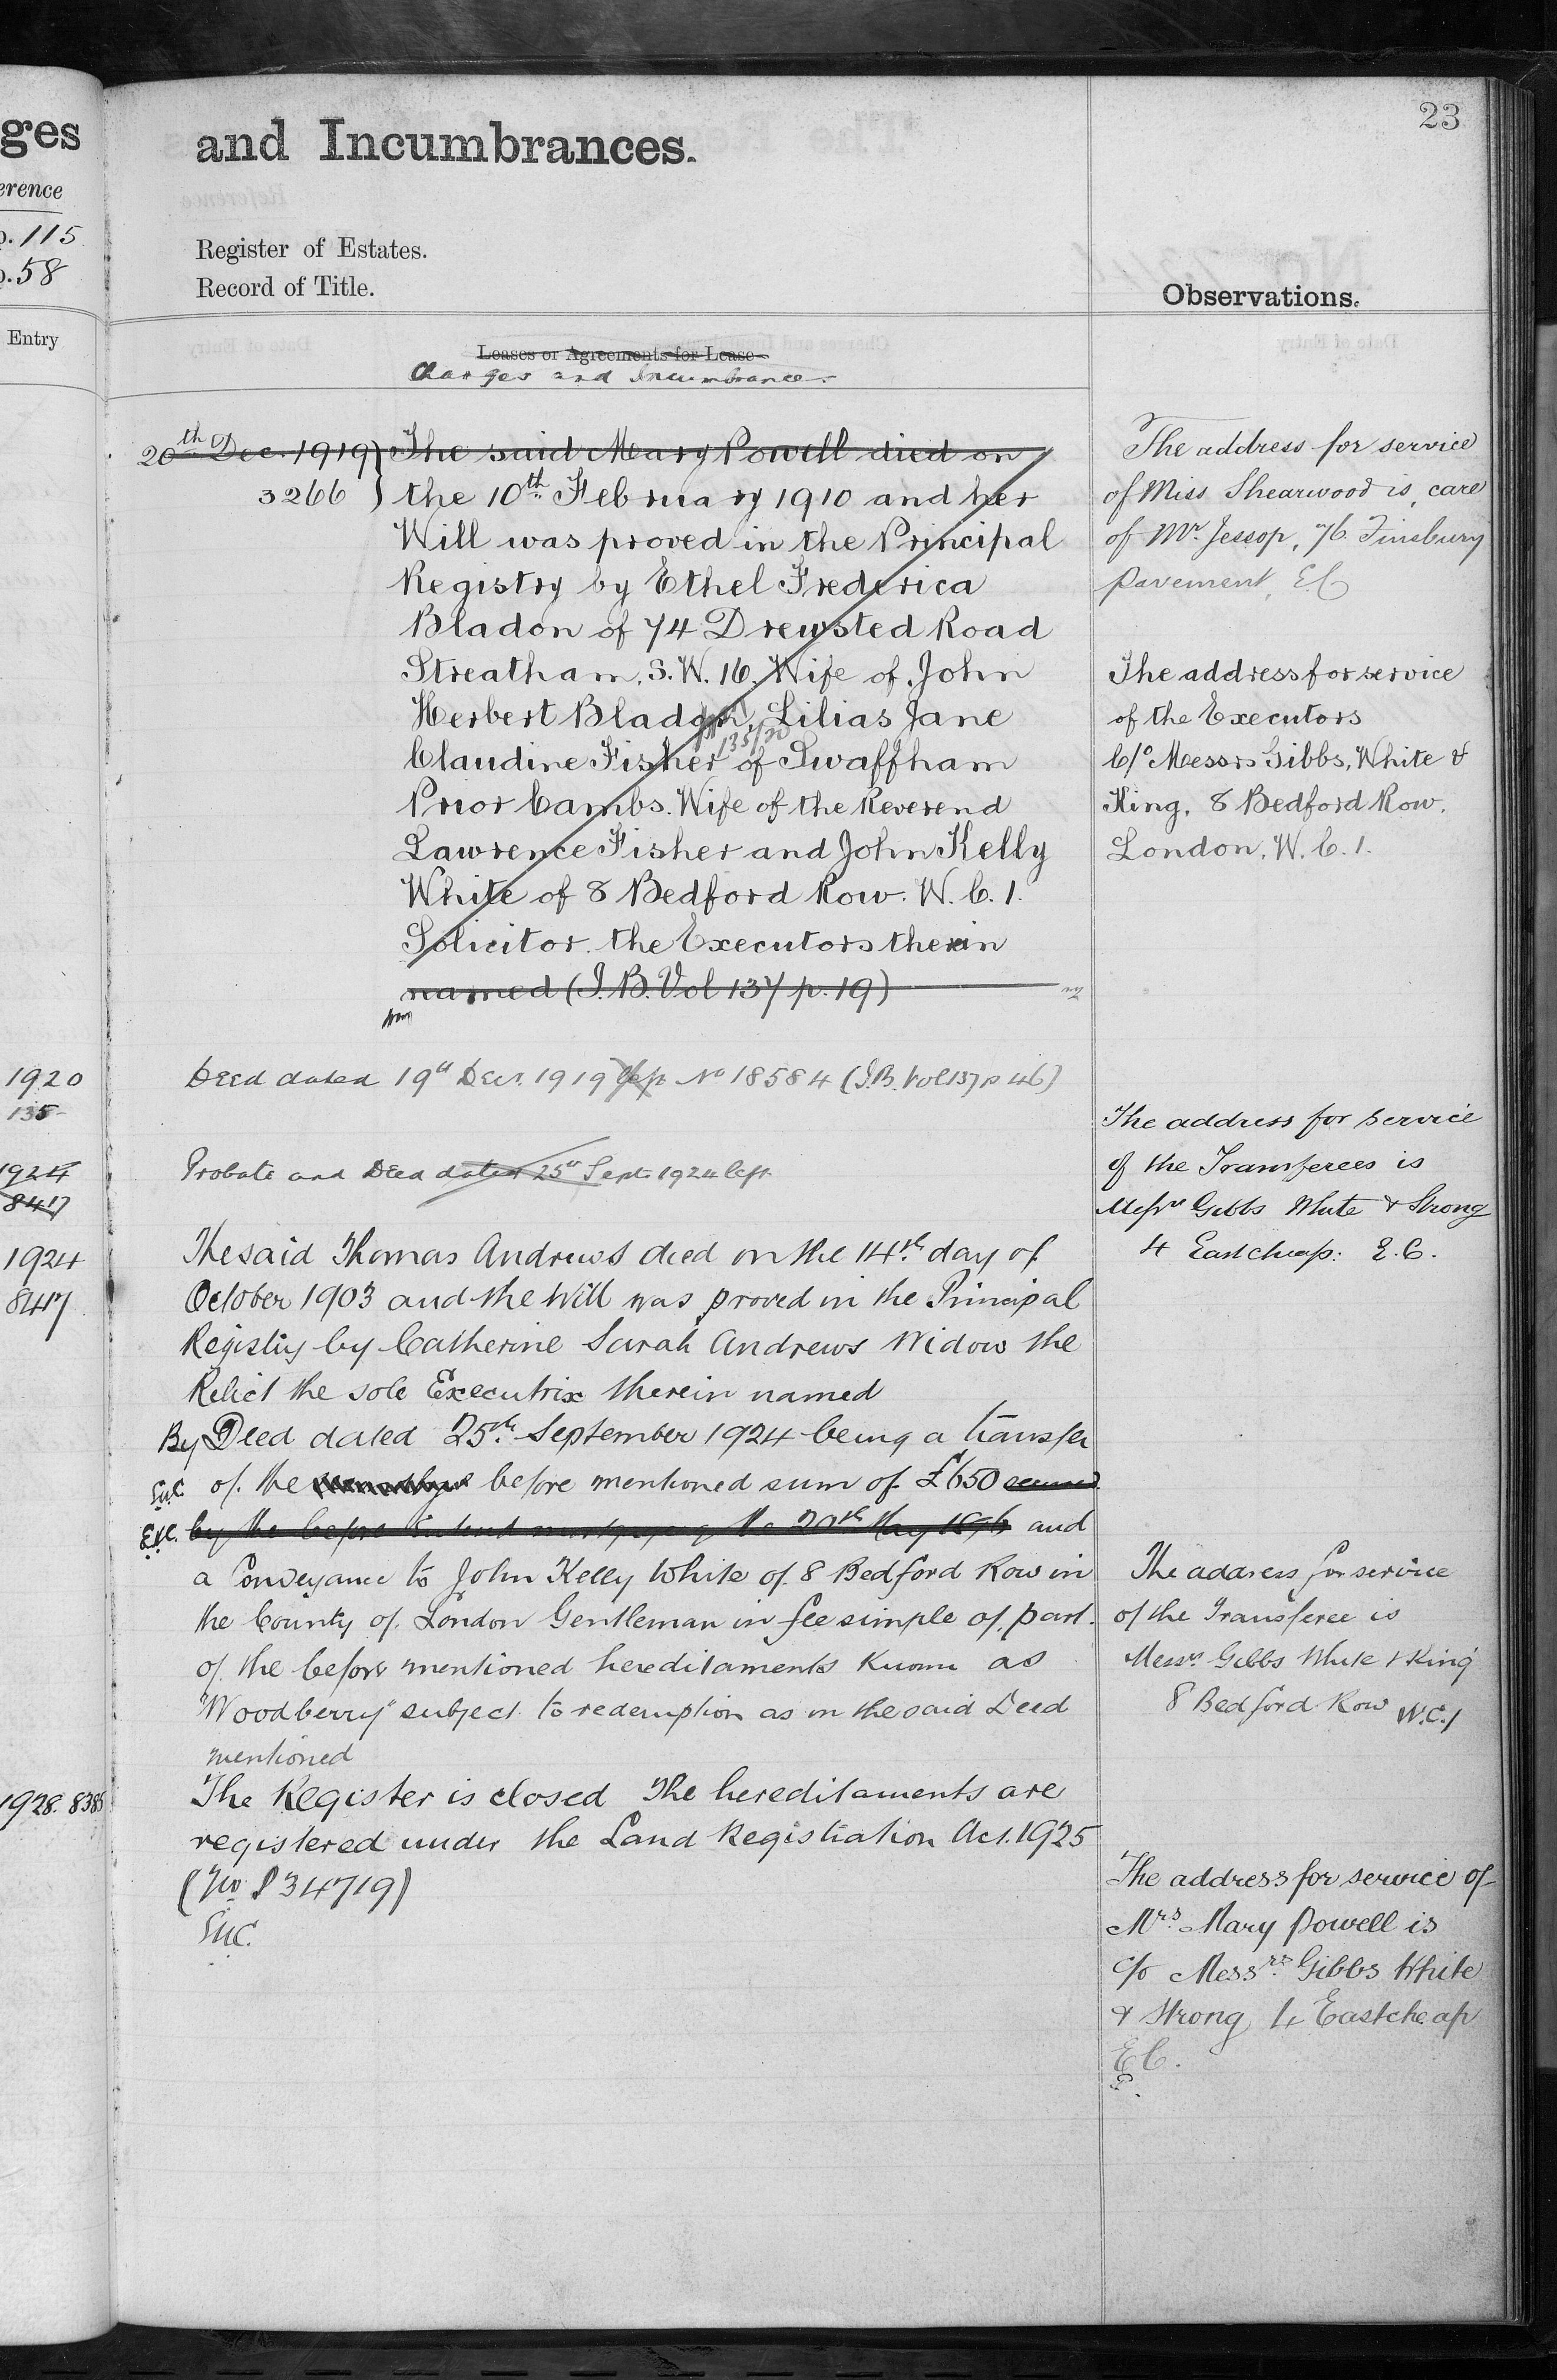 ges
erence
p. 115
p. 58
Entry
1920
135
1924
8417
1924
8417
1928. 8385
23
and Incumbrances.
Register of Estates.
Record of Title.
Leases or Agreements for Lease
Charges and Incumbrances
20th Dec. 1919) The said Mary Powell died on
3266 ) the 10th February 1910 and her
Will was proved in the Principal
Registry by Ethel Frederica
Bladon of 74 Drewsted Road
Streatham, S.W. 16. Wife of John
Herbert Bladon, Lilias Jane
135/20
Claudine Fisher of Swaffham
Prior Cambs. Wife of the Reverend
Lawrence Fisher and John Kelly
White of 8 Bedford Row. W.C.1.
Solicitor the Executors therein
named (I.B. Vol 137 p. 19)
Deed dated 19th Decr. 1919 No 18584 (I.B. Vol 137 p 46)
Probate and Deed dated 25th Sept. 1924 left
The said Thomas Andrews died on the 14th day of
October 1903 and the Will was proved in the Principal
Registry by Catherine Sarah Andrews Widow the
Relict the sole Executrix therein named
By Deed dated 25th September 1924 being a transfer
of the before mentioned sum of £650 secured
by the before entered mortgage of the 20th May 1896 and
a Conveyance to John Kelly White of 8 Bedford Row in
the County of London Gentleman in fee simple of part
of the before mentioned hereditaments known as
"Woodberry" subject to redemption as in the said Deed
mentioned
The Register is closed The hereditaments are
registered under the Land Registration Act. 1925
(No. P34719)
Observations.
The address for service
of Miss Shearwood is, care
of Mr. Jessop, 76 Finsbury
pavement, E.C
The address for service
of the Executors
C/o Messrs Gibbs, White &
King, 8 Bedford Row,
London, W.C.1.
The address for service
of the Transferees is
Messrs Gibbs White & Strong
4 Eastcheap: E.C.
The address for service
of the Transferee is
Messrs. Gibbs White & King
8 Bedford Row W.C.1
The address for service of
Mrs. Mary Powell is
c/o Messrs. Gibbs White
& Strong 4 Eastcheap
E.C.